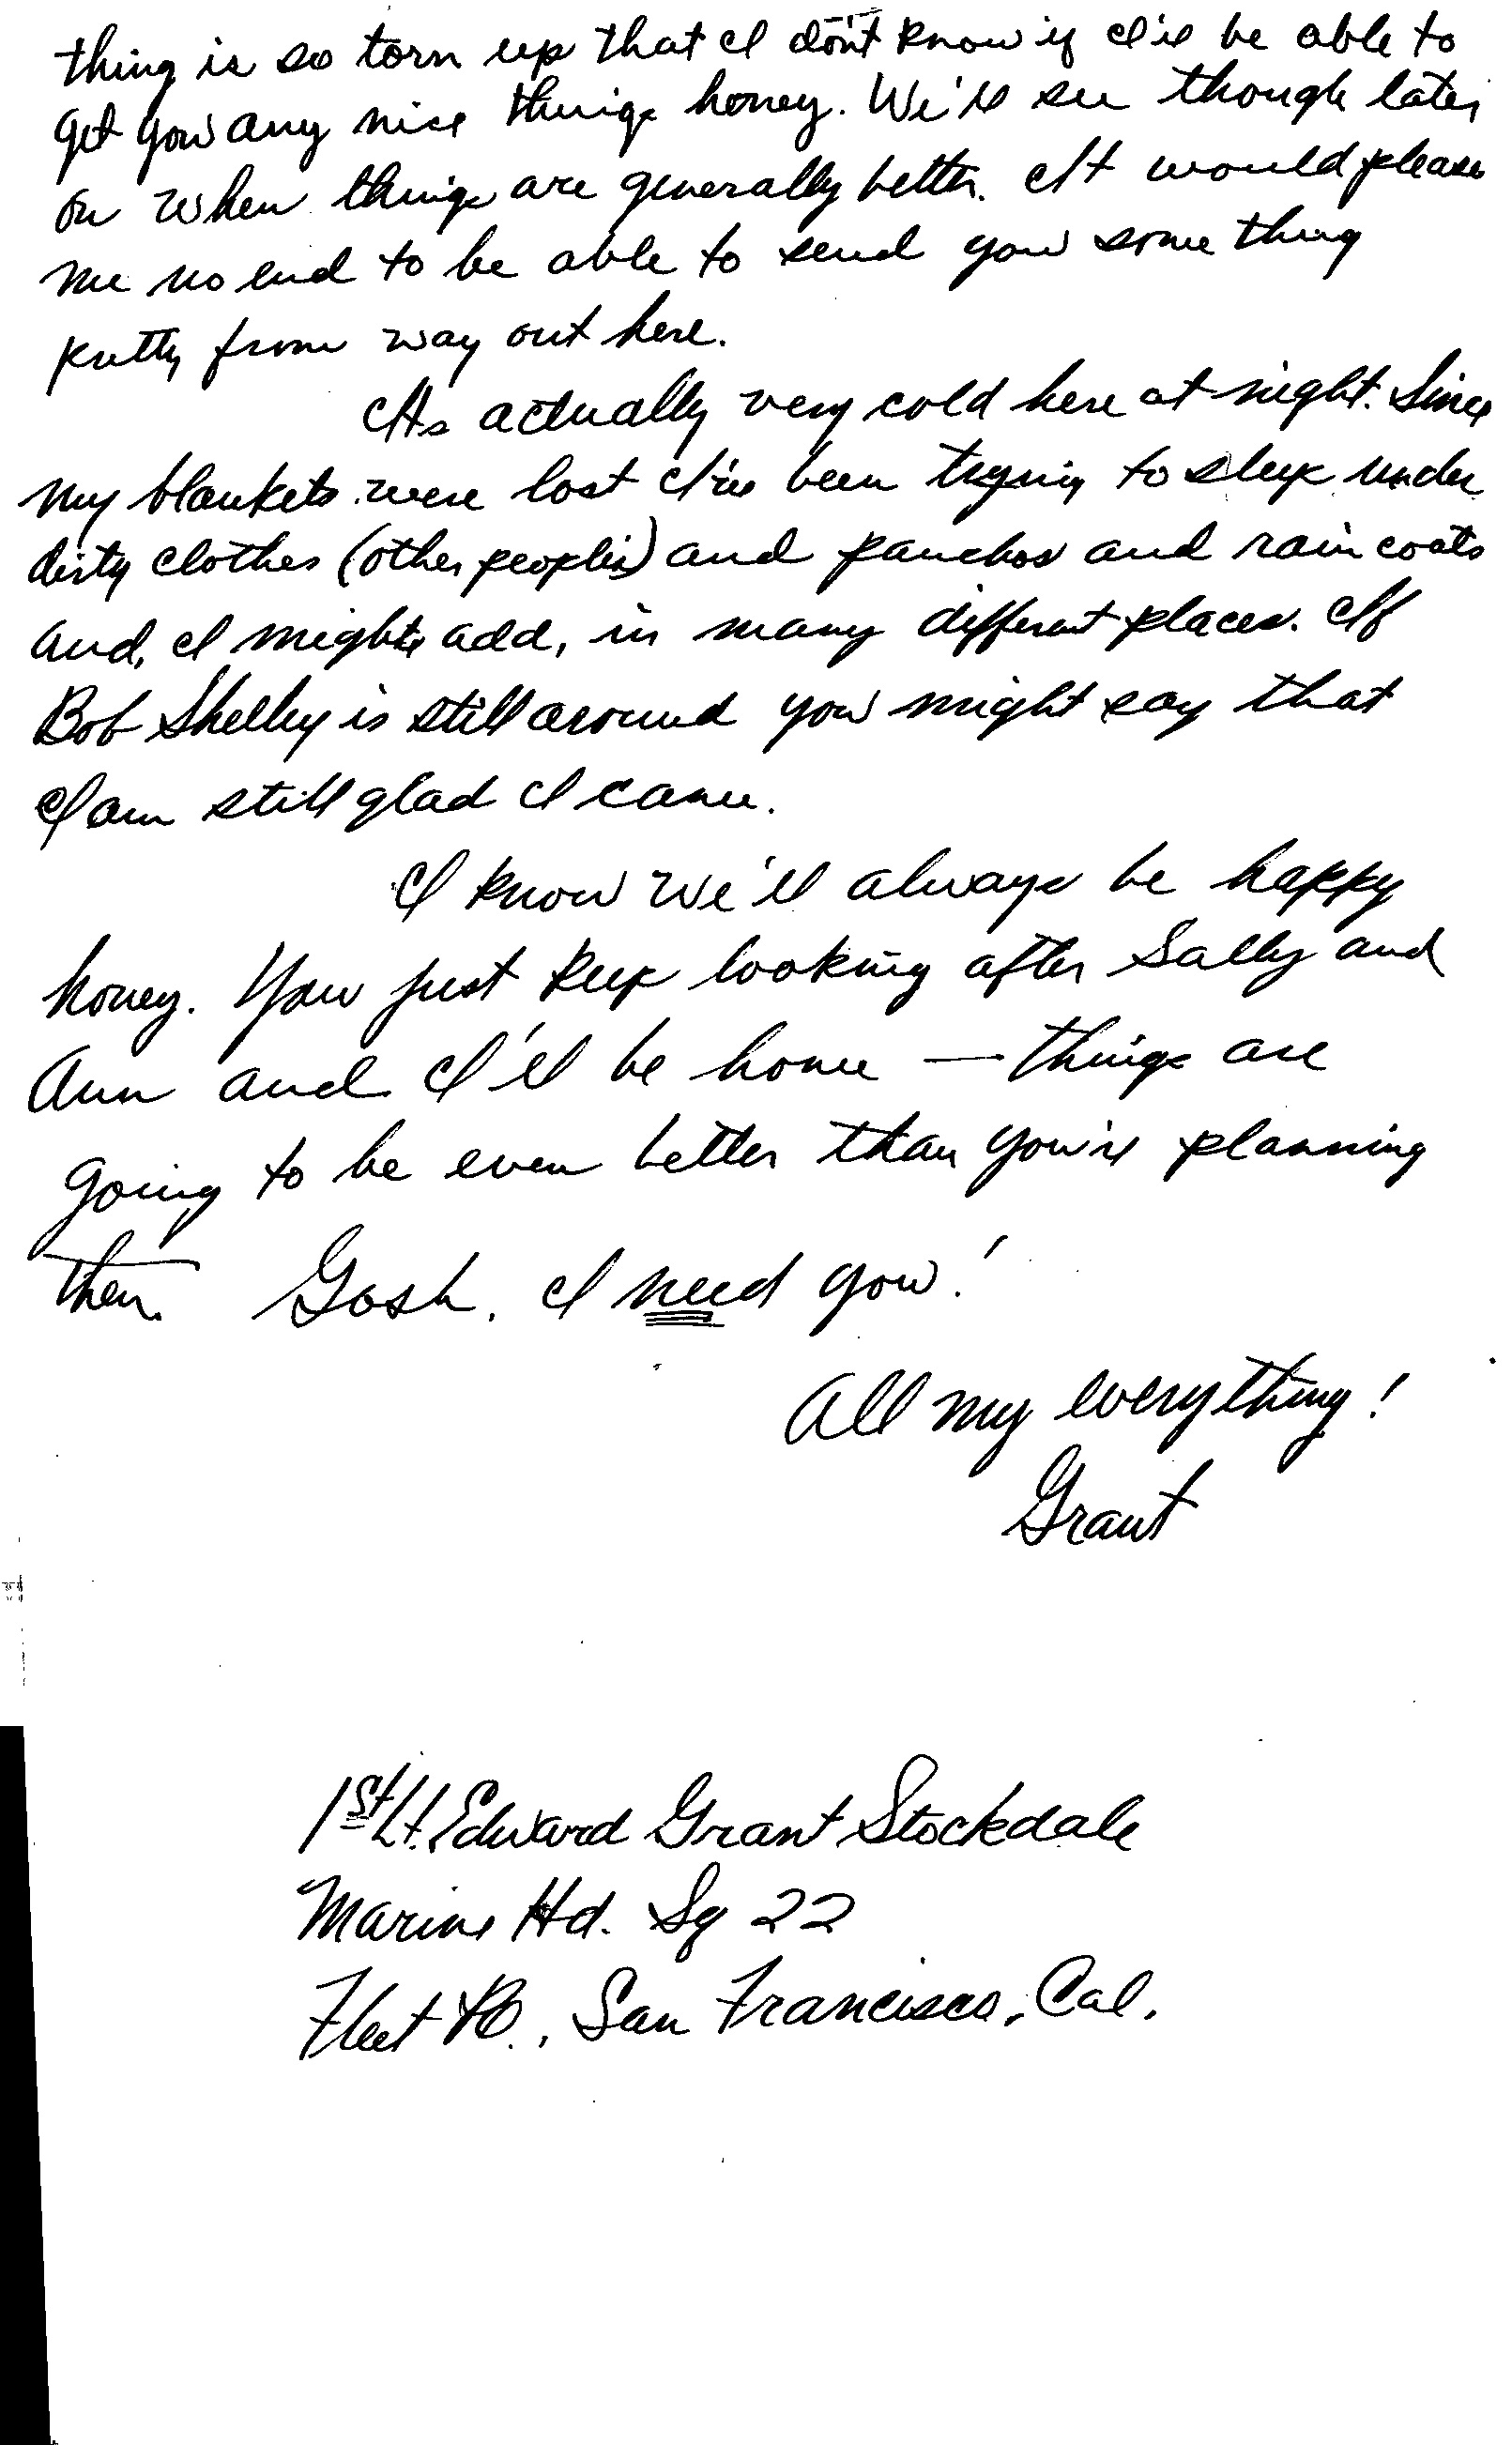 thing is so torn up that I don't know if I'll be able to
get you any nice things honey. We'll see though later
on when things are generally better. It would please
me no end to be able to send you some thing
pretty from way out here.
Its actually very cold here at night. Since
my blankets were lost I've been trying to sleep under
dirty clothes (other peoples) and panchos and rain coats
and, I might add, in many different places. If
Bob Shelley is still around you might say that
I am still glad I came.
I know we'll always be happy
honey. You just keep looking after Sally and
Ann and I'll be home — things are
going to be even better than you're planning
then. Gosh, I need you!
All my everything!
Grant
1st Lt. Edward Grant Stockdale
Marine Hd. Sq 22
Fleet PO., San Francisco, Cal.